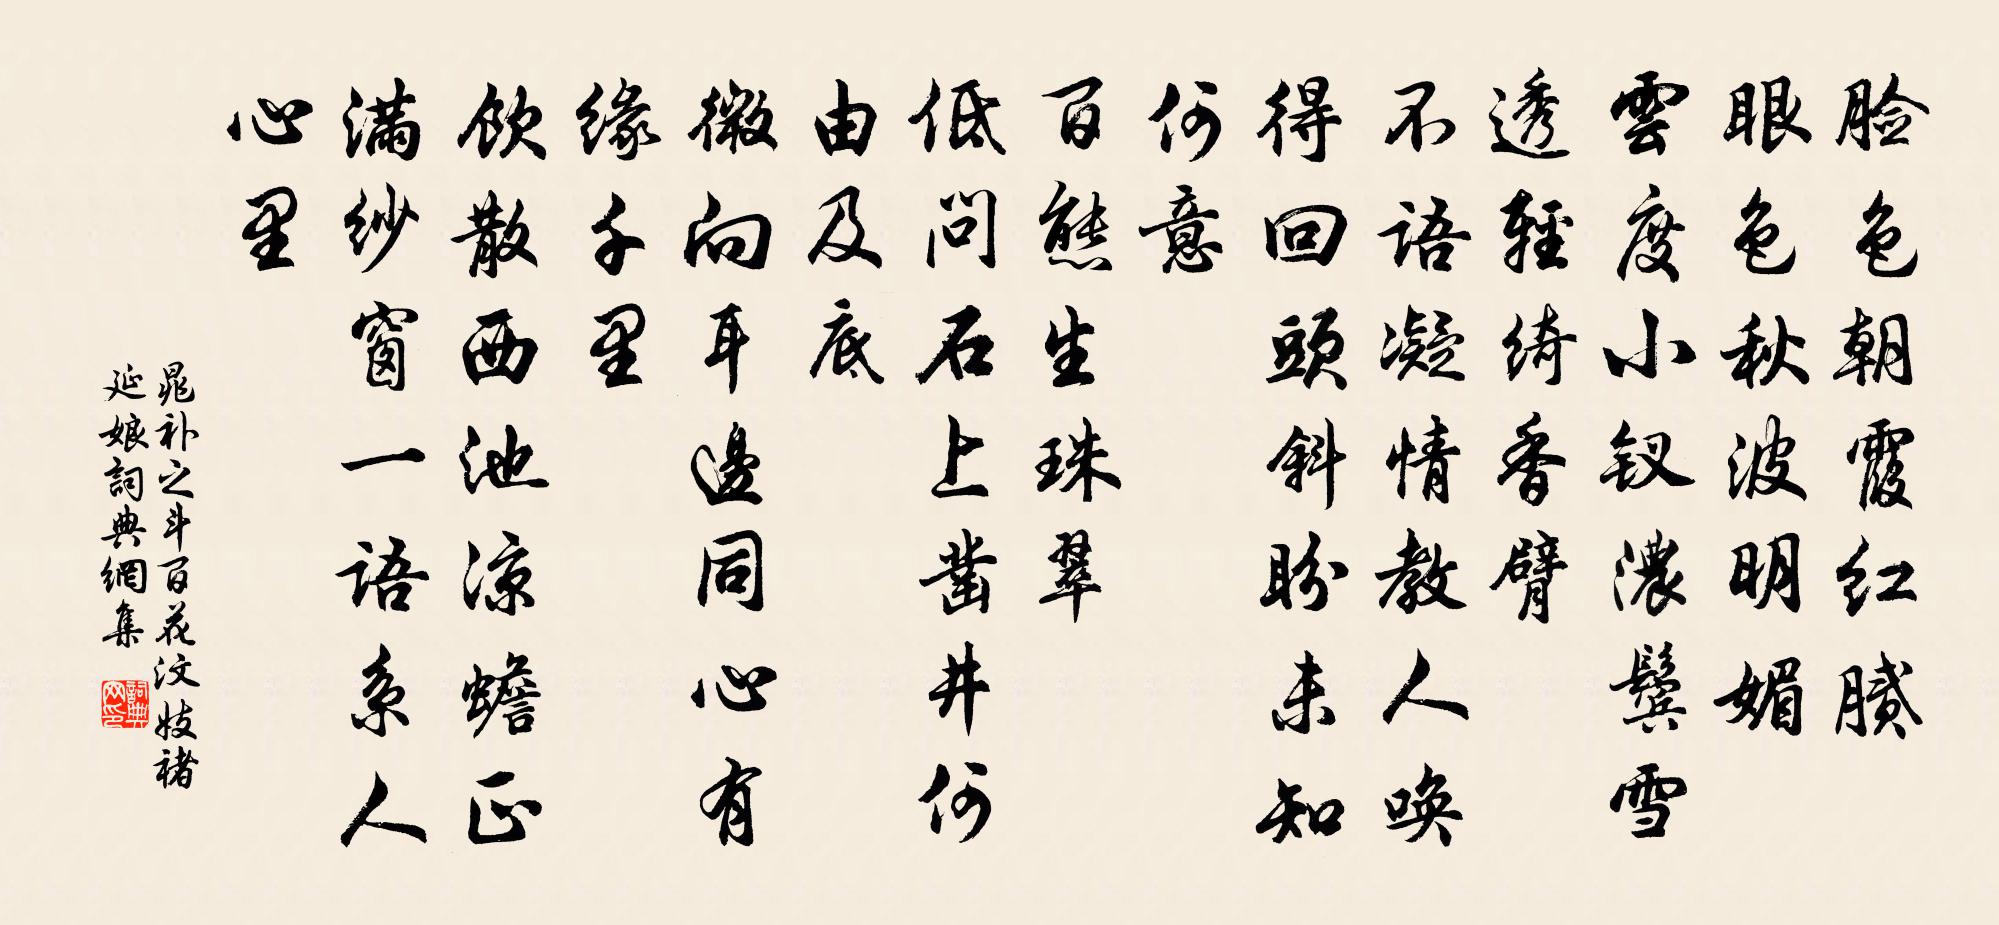 脸色朝霞红腻
眼色秋波明媚
雲度小钗濃鬓雪
透輕綺香臂
不語凝情教人唤
得回頭斜盼未知
何意
百態生珠翠
低問石上凿井何
由及底
微向耳邊同心有
缘千里
飲散西池凉蟾正
滿纱窗一語系人
心里
晁补之斗百花汶妓褚
延娘詞典網集
詞典网印